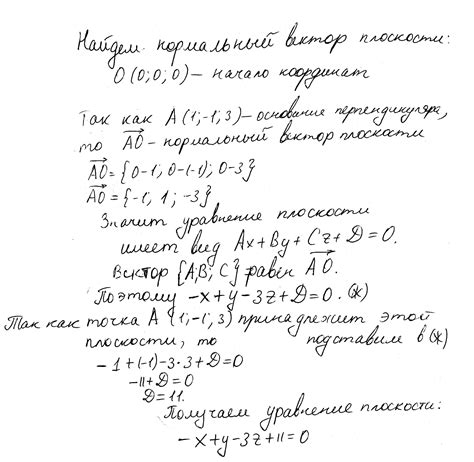 Найдем нормальный вектор плоскости:
O (0;0;0) – начало координат
Так как A (1;-1;3) – основание перпендикуляра,
то AO – нормальный вектор плоскости
AO = {0-1; 0-(-1); 0-3}
AO = {-1; 1; -3}
Значит уравнение плоскости
имеет вид Ax+By+Cz+D=0.
Вектор {A;B;C} равен AO.
Поэтому -x+y-3z+D=0. (*)
Так как точка A (1;-1;3) принадлежит этой
плоскости, то подставим в (*)
-1+(-1)-3·3+D=0
-11+D=0
D=11.
Получаем уравнение плоскости:
-x+y-3z+11=0